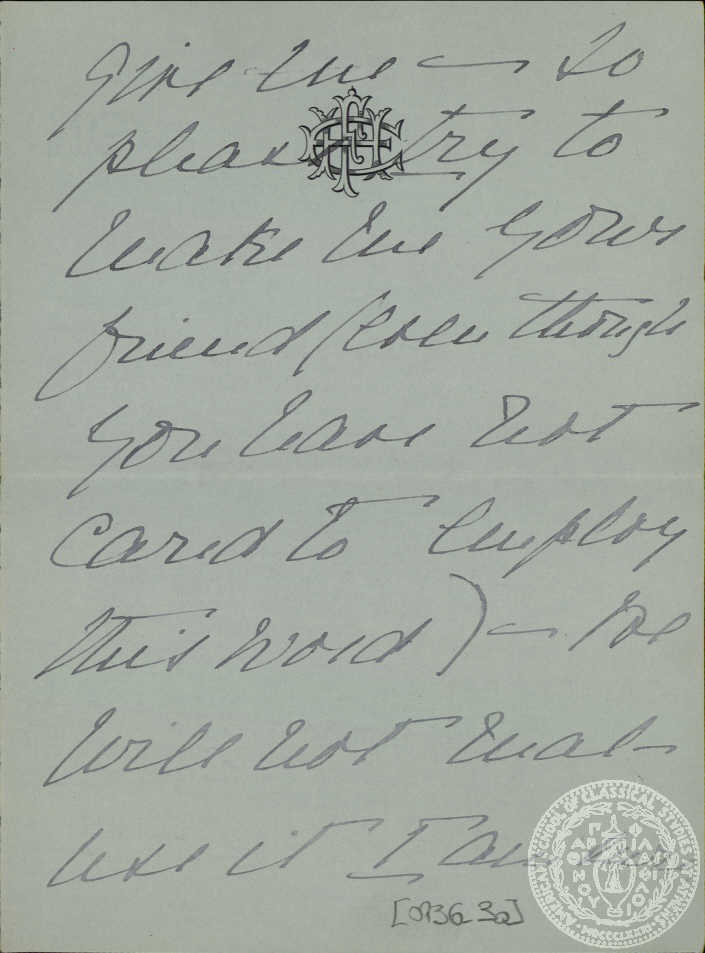 give me — so
please try to
make me your
friend (even though
you have not
cared to employ
this word) — We
will not mal-
use it I am
[0736-30]
AMERICAN SCHOOL OF CLASSICAL STUDIES AT ATHENS
MDCCCLXXXI